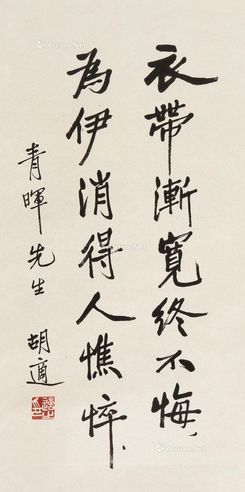 衣帶漸寬終不悔，
為伊消得人憔悴．
青暉先生
胡適